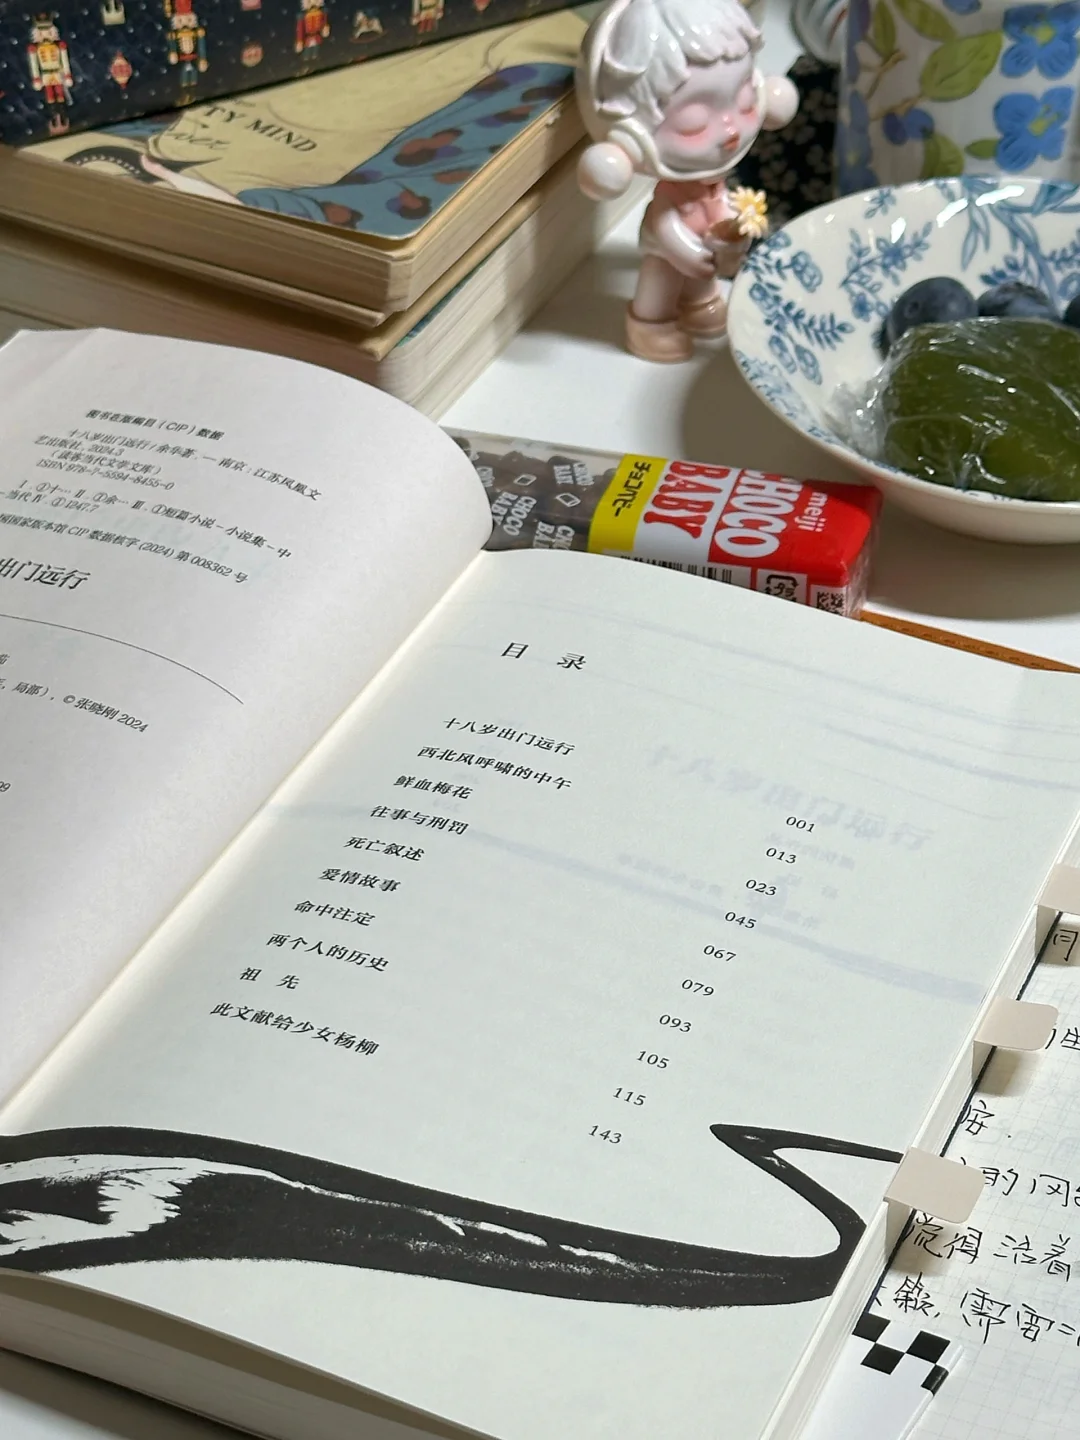 TY MIND
图书在版编目（CIP）数据
十八岁出门远行 / 余华著. — 南京：江苏凤凰文
艺出版社, 2024.3
（读客当代文学文库）
ISBN 978-7-5594-8455-0
Ⅰ. ①十… Ⅱ. ①余… Ⅲ. ①短篇小说－小说集－中
－当代 Ⅳ. ①I247.7
国国家版本馆 CIP 数据核字 (2024) 第 008362 号
出门远行
局部），© 张晓刚 2024
meiji
CHOCO
BABY
チョコベビー
CHOCO
BABY
目 录
十八岁出门远行 001
西北风呼啸的中午 013
鲜血梅花 023
往事与刑罚 045
死亡叙述 067
爱情故事 079
命中注定 093
两个人的历史 105
祖 先 115
此文献给少女杨柳 143
的
觉得 活着
需要